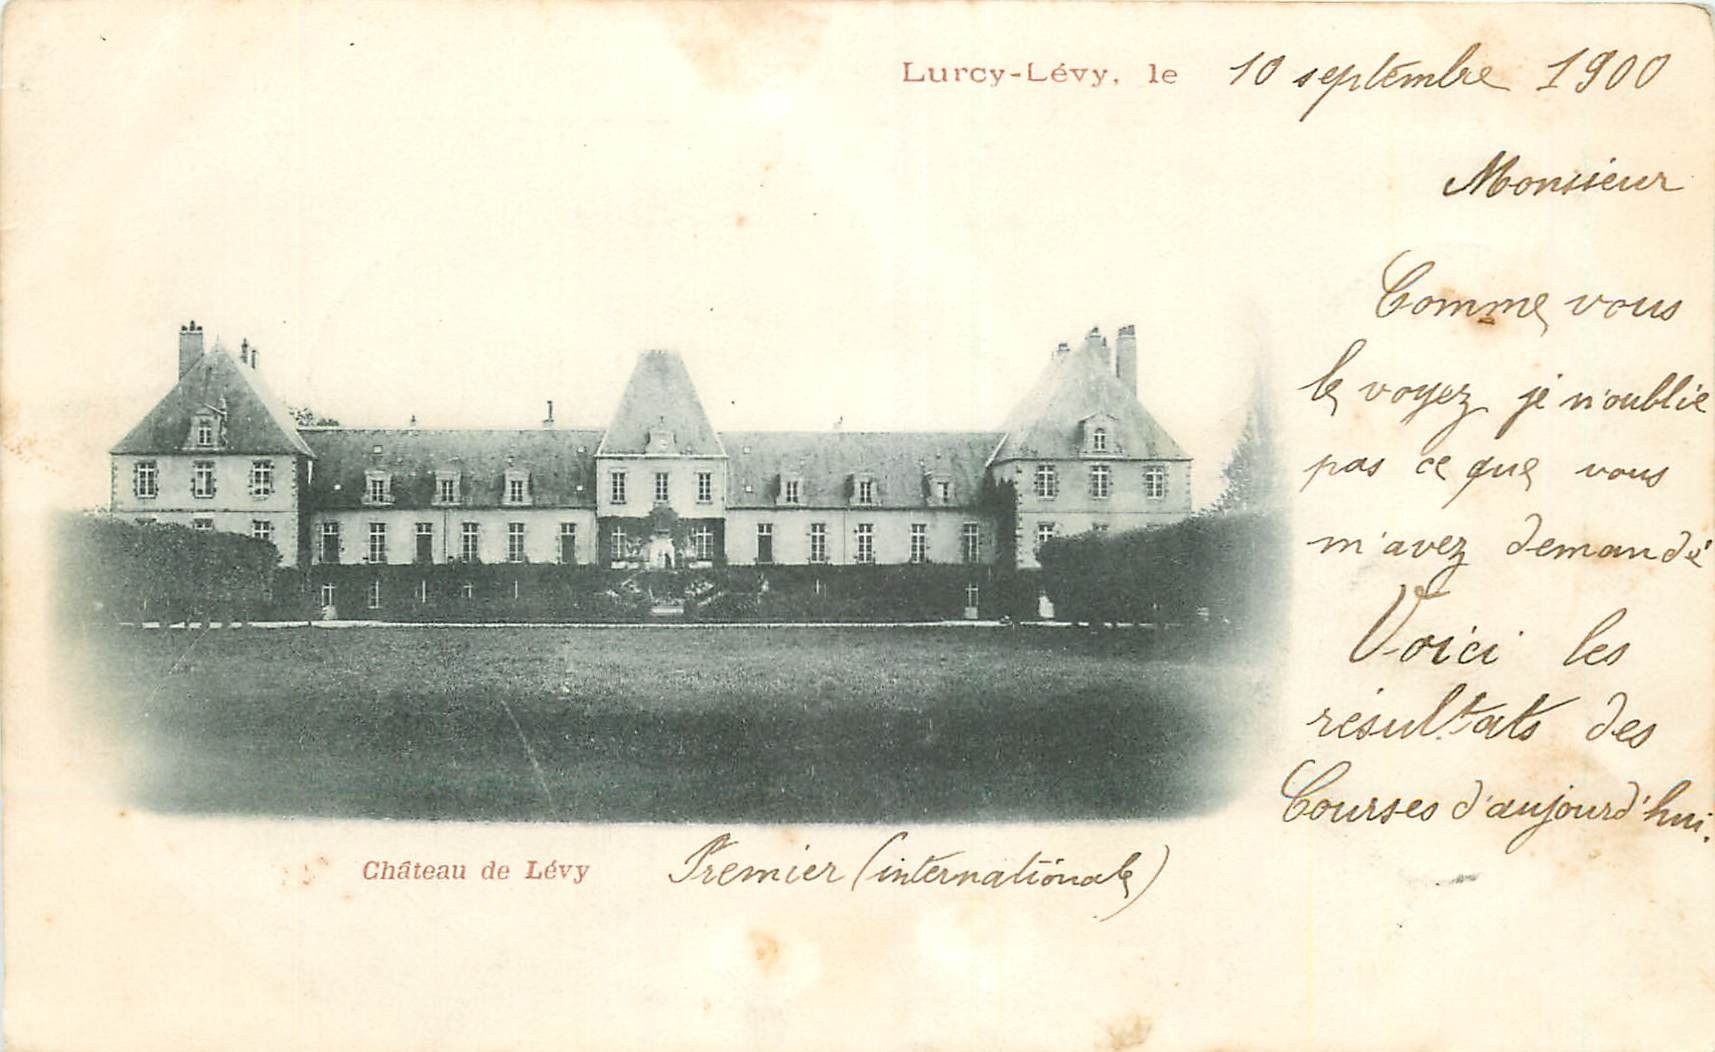 Lurcy-Lévy, le 10 septembre 1900
Monsieur
Comme vous
le voyez je n'oublie
pas ce que vous
m'avez demandé
Voici les
résultats des
Courses d'aujourd'hui.
Château de Lévy
Premier (internationale)